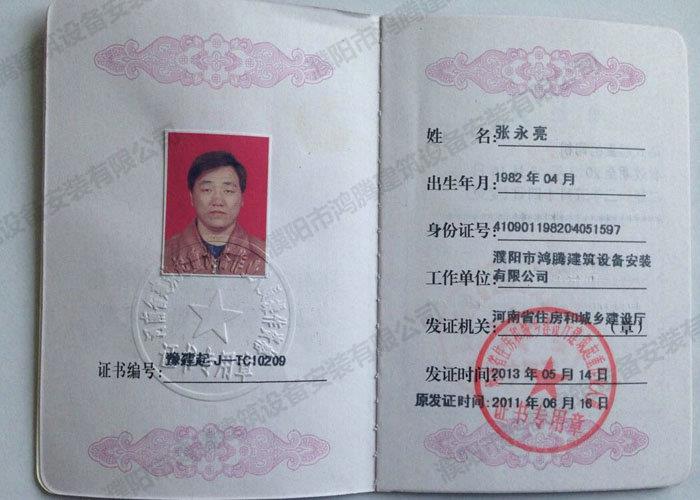 证书编号:豫建起J—TC10209
姓 名:张永亮
出生年月:1982 年 04 月
身份证号:410901198204051597
工作单位:濮阳市鸿腾建筑设备安装
有限公司
发证机关:河南省住房和城乡建设厅
(章)
发证时间:2013 年 05 月 14 日
原发证时间:2011 年 06 月 16 日
证书专用章
濮阳市鸿腾建筑设备安装有限公司